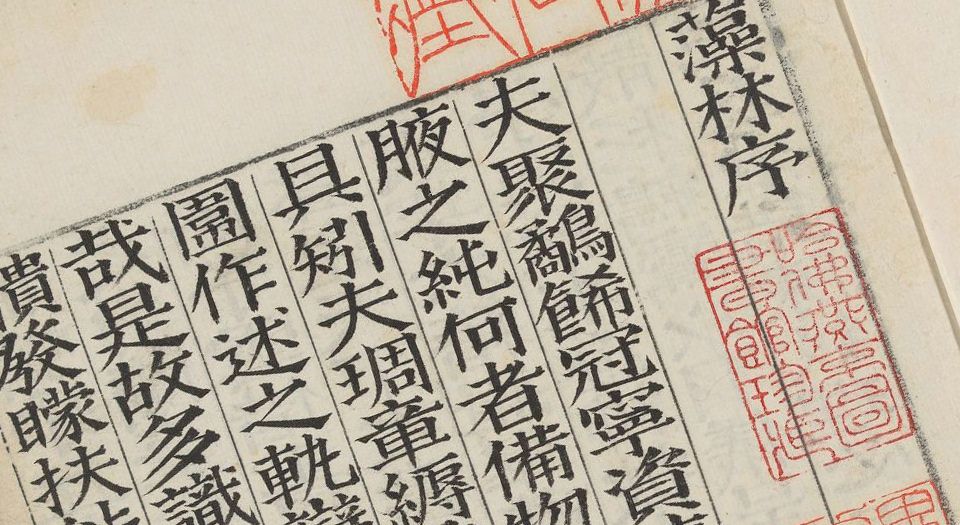 藻林序
夫聚鷸餙冠寧資
腋之純何者備物
具矧夫琱章縟
園作述之軌
哉是故多識
憒發矇扶